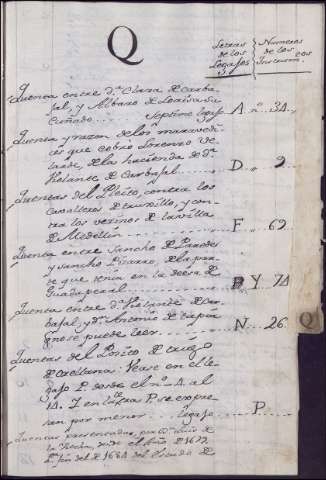 Q
Letras de los Legajos
Numeros de los Instrum.tos
Quenta entre d.ª Clara de Carba-
jal, y Albaro de Loaisa su
Cuñado Septimo legajo A n.º 34
Quenta y razon de los maravedi-
ses que cobro Lorenzo
de las hacienda de d.ª
Violante de Carbajal D 9
Quentas del Pleito, contra los
cavalleros de truxillo, y con-
tra los vecinos de la villa
de Medellin F 69
Quenta entre Sancho de Paredes
y Sancho Pizarro, de la par-
te que tenia en la deesa de
Guadaperal Y 74
Quenta entre d.ª Violante de Car-
bajal, y d.n Antonio de
no se puede leer N 26
Q
Quentas del Posito de trigo
de Vease en el le-
gajo P. desde el n.º 1 al
14. Y en la letra P. se expre-
san por menor legajo P
Quentas presentadas, por
desde el Año de 1677
fin del de 1684 del Estado de